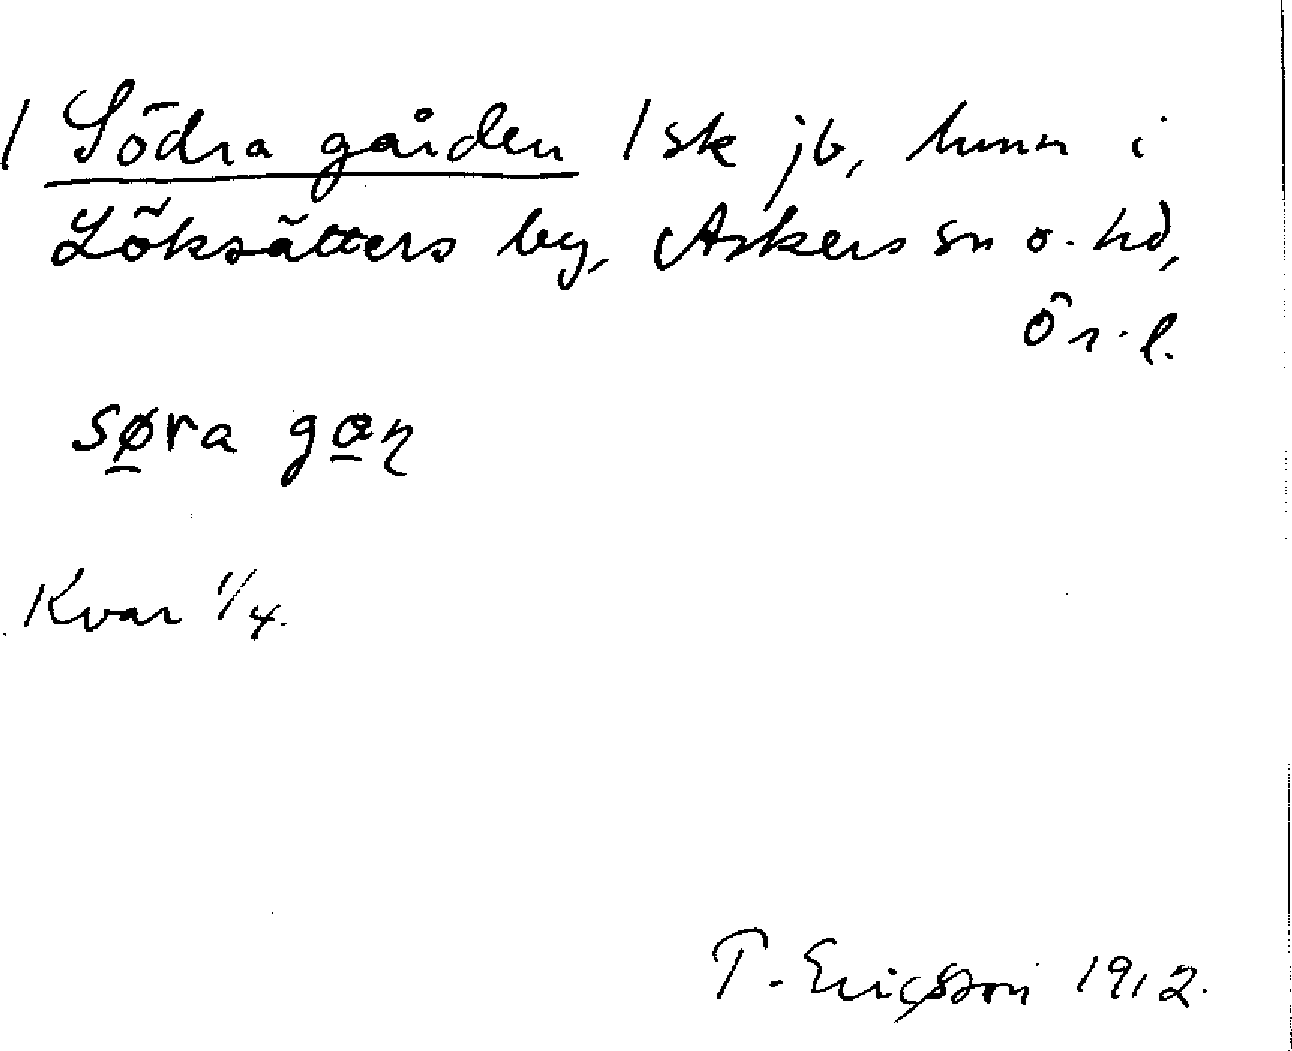 / Södra gården / sk jb, hmn i
Löksätters by, Askers sn o. hd,
Ör. l.
søra gaɳ
Kvar 1/4.
T. Ericsson 1912.